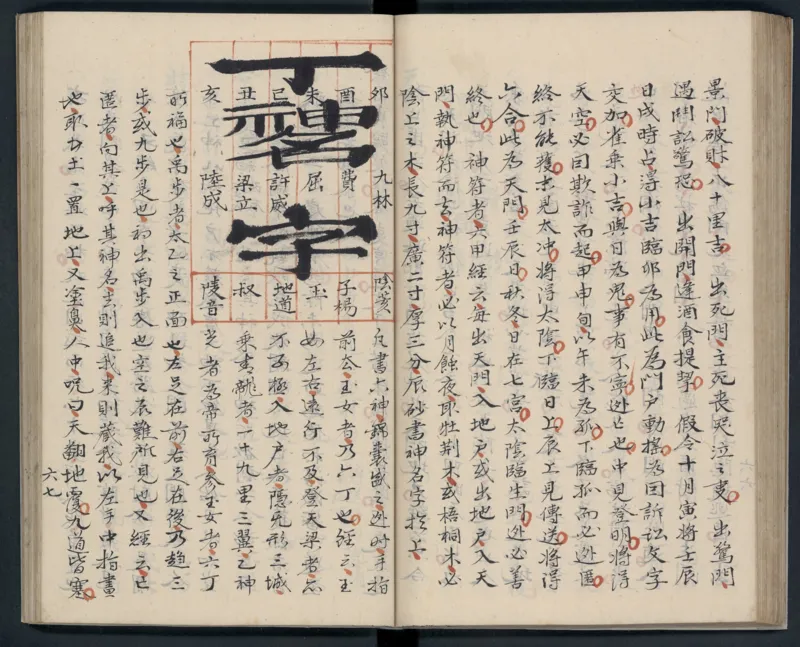 景門破財八十里吉 出死門主死喪哭泣之事 出驚門
遇鬥訟驚恐 出開門逢酒食提挈 假令十月寅將壬辰
日戌時占得小吉臨卯為用此為門戶動搖為因訴訟文字
交加雀乗小吉與日為鬼事有不寧迯亡也中見登明將得
天空必因欺詐而起甲申旬以午未為孤下臨孤而必迯匿
終不能獲末見太冲將得大陰下臨日上辰上見傳送將得
六合此為天門壬辰日秋冬日在七宮太陰臨生門迯必善
終也 神符者六甲經云每出天門入地戶或出地戶入天
門執神符而去神符者必以月蝕夜取牡荆木或梧桐木必
陰上之木長九寸廣二寸厚三分辰砂書神名字於上
丁
字
卯 九林 陰亥 反書六神錦囊盛之迯時手指
酉 費 子楊 前奉玉女者乃六丁也經云玉
未 屈 玉 女左右遠行不及登天梁者志
巳 許咸 地道 不極入地戶者隱形三城
丑 梁立 叔 乗青龍者一十九里三翼之神
亥 陸成 陵音 者為帝所育象玉女者六丁
所福也禹步者太乙之正面也左足在前右足在後乃趨三
步或九步是也初出禹步入也空之辰難所見也又經云亡
匿者向其上呼其神名去則追我來則藏我以左手中指畫
地取少土一置地上又塗鼻人中呪曰天翻地覆九道皆寒
六七